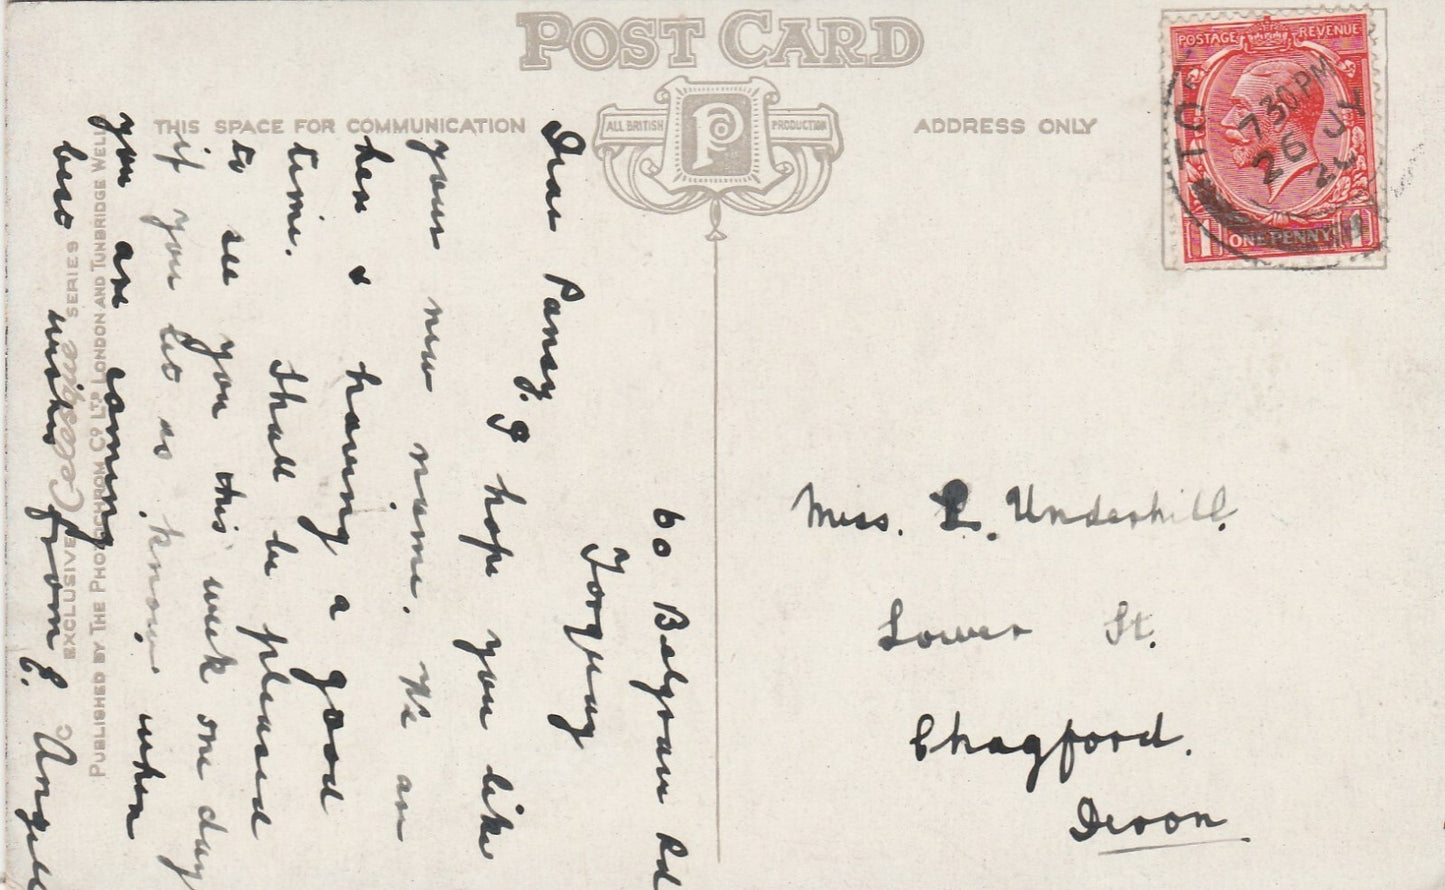 POST CARD
ALL BRITISH PRODUCTION
P Co
THIS SPACE FOR COMMUNICATION
ADDRESS ONLY
POSTAGE REVENUE
ONE PENNY
1 1
7 30 PM
26 JY
60 Belgrave Rd
Torquay
Dear Pansy. I hope you like
your new name. We are
her & having a good
time. Shall be pleased
to see you this week one day
if you let us know when
you are coming
best wishes from E. Angell
EXCLUSIVE Celesque SERIES
PUBLISHED BY THE PHOTOCHROM CO LTD LONDON AND TUNBRIDGE WELL
Miss. P. Underhill
Lower St.
Chagford.
Devon